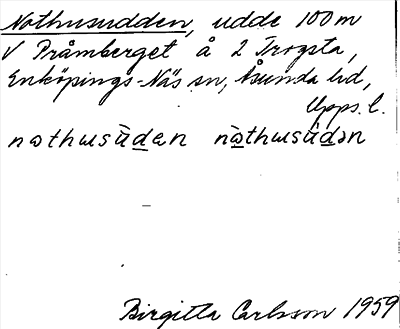 Nothusudden, udde 100 m
V Pråmberget å 2 Trogsta,
Enköpings-Näs sn, Åsunda hd,
Upps. l.
nothusùden nòthusùdən
Birgitta Carlsson 1959